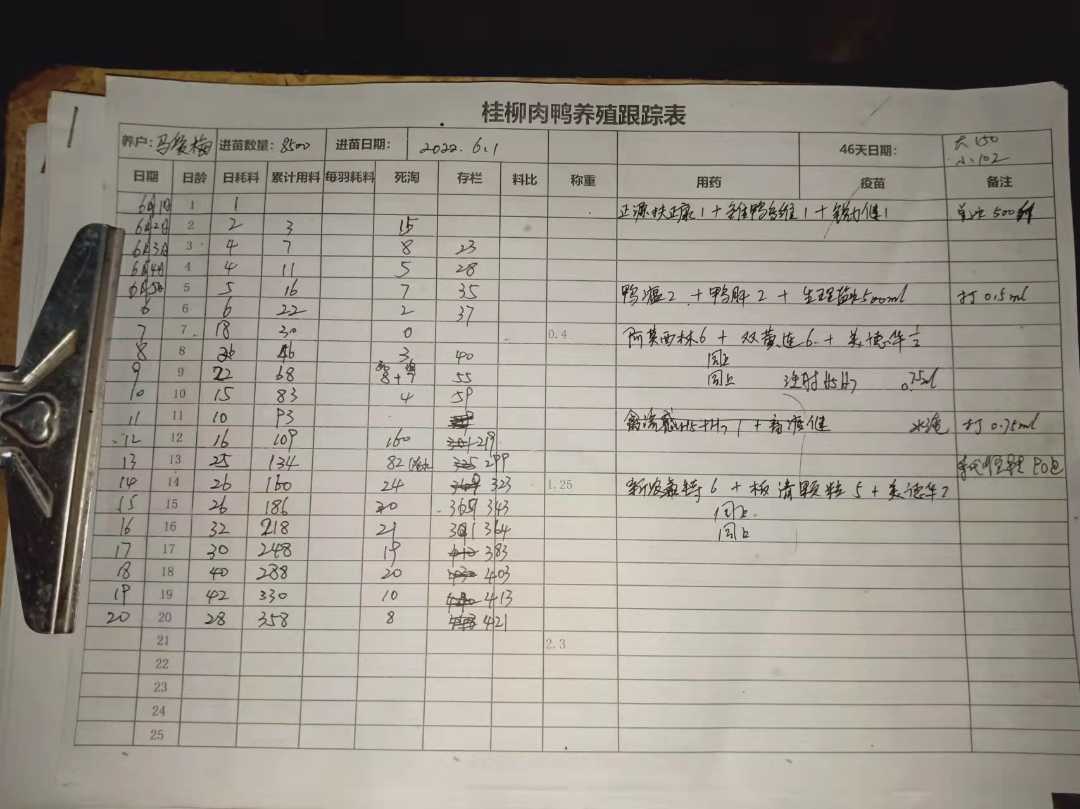 桂柳肉鸭养殖跟踪表
养户: 马俊梅 进苗数量: 8500 进苗日期: 2022.6.1 46天日期: 大150
小102
日期 日龄 日耗料 累计用料 每羽耗料 死淘 存栏 料比 称重 用药 疫苗 备注
6月1日 1 1 正源扶正康1+
6月2日 2 2 3 15
6月3日 3 4 7 8 23
6月4日 4 4 11 5 28
6月5日 5 5 16 7 35 2 + 鸭肝2 + 生理盐水500ml 打0.5ml
6 6 6 22 2 37
7 7 18 30 0 0.4 阿莫西林6 + 双黄连6 +
8 8 46 3 40 同上
9 9 22 68 8+7 55 同上 注射H5H7 0.75ml
10 10 15 83 4 59
11 11 10 93 打0.75ml
12 12 16 109 160 219
13 13 25 134 82 299
14 14 26 160 24 323 1.25 6 + 板清颗粒5 +
15 15 26 186 20 343 同上
16 16 32 218 21 364 同上
17 17 30 248 19 383
18 18 40 288 20 403
19 19 42 330 10 413
20 20 28 358 8 421
21 2.3
22
23
24
25